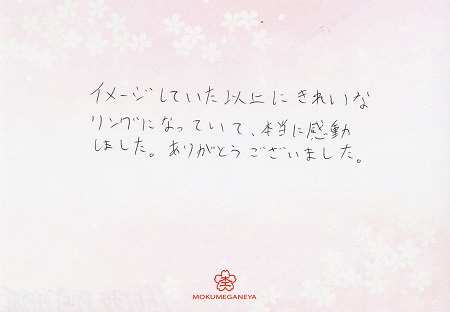 イメージしていた以上にきれいな
リングになっていて、本当に感動
しました。ありがとうございました。
MOKUMEGANEYA